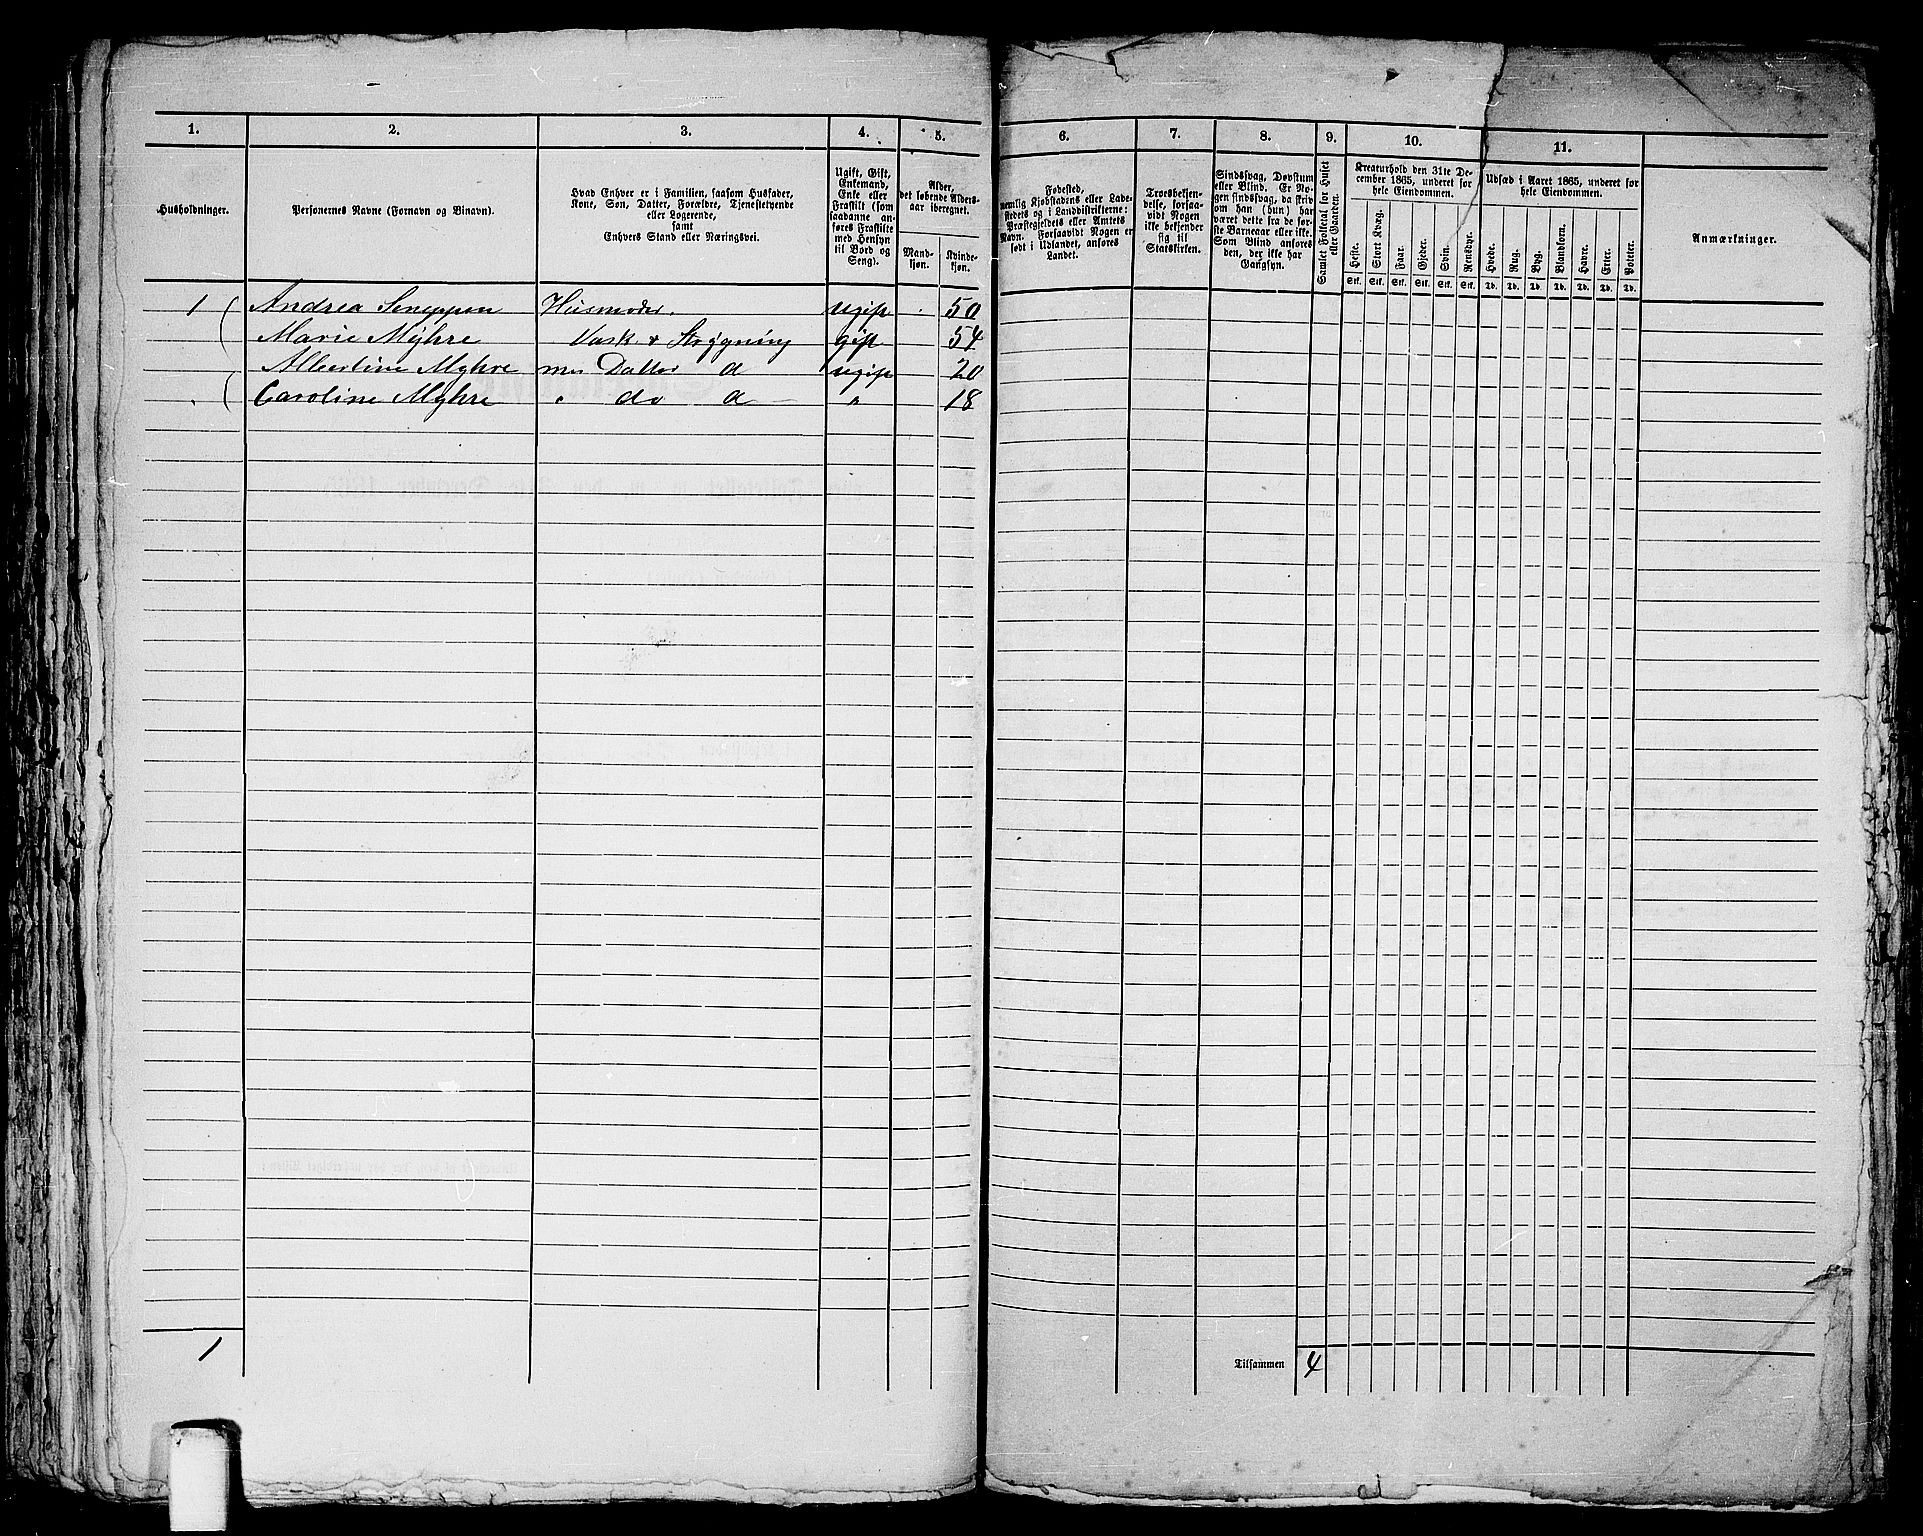 1. 2. 3. 4. 5. 6. 7. 8. 9. 10. 11.
Husholdninger.
Personernes Navne (Fornavn og Binavn).
Hvad Enhver er i Familien, saasom Husfader,
Kone, Søn, Datter, Forældre, Tjenestetyende
eller Logerende,
samt
Enhvers Stand eller Næringsvei.
Ugift, Gift,
Enkemand,
Enke eller
Fraskilt (som
saadanne an-
føres Fraskilte
med Hensyn
til Bord og
Seng).
Alder,
det løbende Alders-
aar iberegnet.
Mand-
kjøn.
Kvinde-
kjøn.
Fødested,
nemlig Kjøbstadens eller Lade-
stedets og i Landdistrikterne:
Præstegjeldets eller Amtets
Navn. Forsaavidt Nogen er
født i Udlandet, anføres
Landet.
Troesbekjen-
delse, forsaa-
vidt Nogen
ikke bekjender
sig til
Statskirken.
Sindssvag, Døvstum
eller Blind. Er No-
gen sindssvag, da skriv
om han (hun) har
været dette fra de før-
ste Barneaar eller ikke.
Som Blind anføres
den, der ikke har
Gangsyn.
Samlet Folketal for Huset
eller Gaarden.
Kreaturhold den 31te De-
cember 1865, underet for
hele Eiendommen.
Heste. Stort Kvæg. Faar. Gjeder. Svin. Rensdyr.
Stk. Stk. Stk. Stk. Stk. Stk.
Udsæd i Aaret 1865, underet for
hele Eiendommen.
Hvede. Rug. Byg. Blandkorn. Havre. Erter. Poteter.
Td. Td. Td. Td. Td. Td. Td.
Anmærkninger.
1 Andrea Husmoder. ugift 50
Marie Myhre Vask & Strygning gift 54
Albertine Myhre Datter d ugift 20
Caroline Myhre " do d " 18
1
Tilsammen 4